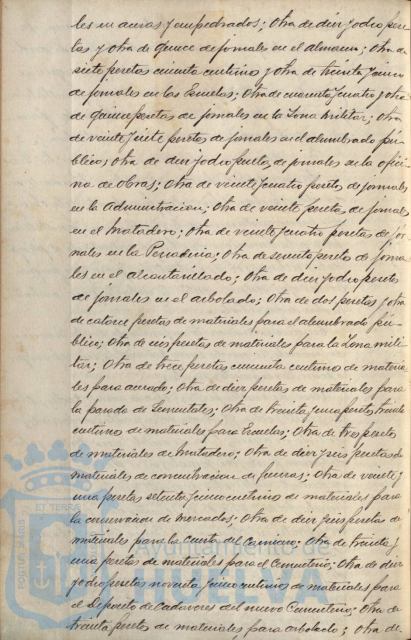 les en aceras y empedrados; Otra de diez y ocho pese
tas y otra de quince de jornales en el almacen; Otra de
siete pesetas cincuenta centimos y otra de treinta y cinco
de jornales en las Escuelas; Otra de cuarenta y cuatro y otra
de quince pesetas de jornales en la Zona militar; Otra
de veinte y siete pesetas de jornales en el alumbrado pú
blico; Otra de diez y ocho pesetas de jornales en la ofici
na de Obras; Otra de veinte y cuatro pesetas de jornales
en la Administracion; Otra de veinte pesetas de jornales
en el Matadero; Otra de veinte y cuatro pesetas de jor
nales en la Panaderia; Otra de sesenta pesetas de jorna
les en el alcantarillado; Otra de diez y ocho pesetas
de jornales en el arbolado; Otra de dos pesetas y otra
de catorce pesetas de materiales para el alumbrado pú
blico; Otra de seis pesetas de materiales para la Zona mili
tar; Otra de trece pesetas cincuenta centimos de materia
les para acerado; Otra de diez pesetas de materiales para
la parada de Sementales; Otra de treinta y una pesetas treinta
centimos de materiales para Escuelas; Otra de tres pesetas
de materiales de Matadero; Otra de diez y seis pesetas de
materiales de construccion de; Otra de veinte y
una pesetas setenta y cinco centimos de materiales para
la conservacion de Mercados; Otra de diez y seis pesetas de
materiales para la Cuesta del Carnicero; Otra de treinta y
una pesetas de materiales para el Cementerio; Otra de diez
y ocho pesetas noventa y cinco centimos de materiales para
el Deposito de Cadaveres del nuevo Cementerio; Otra de
treinta pesetas de materiales para arbolado; Otra de
ET TERRA
PORTUS MARIS
Ayuntamiento de
HUELVA